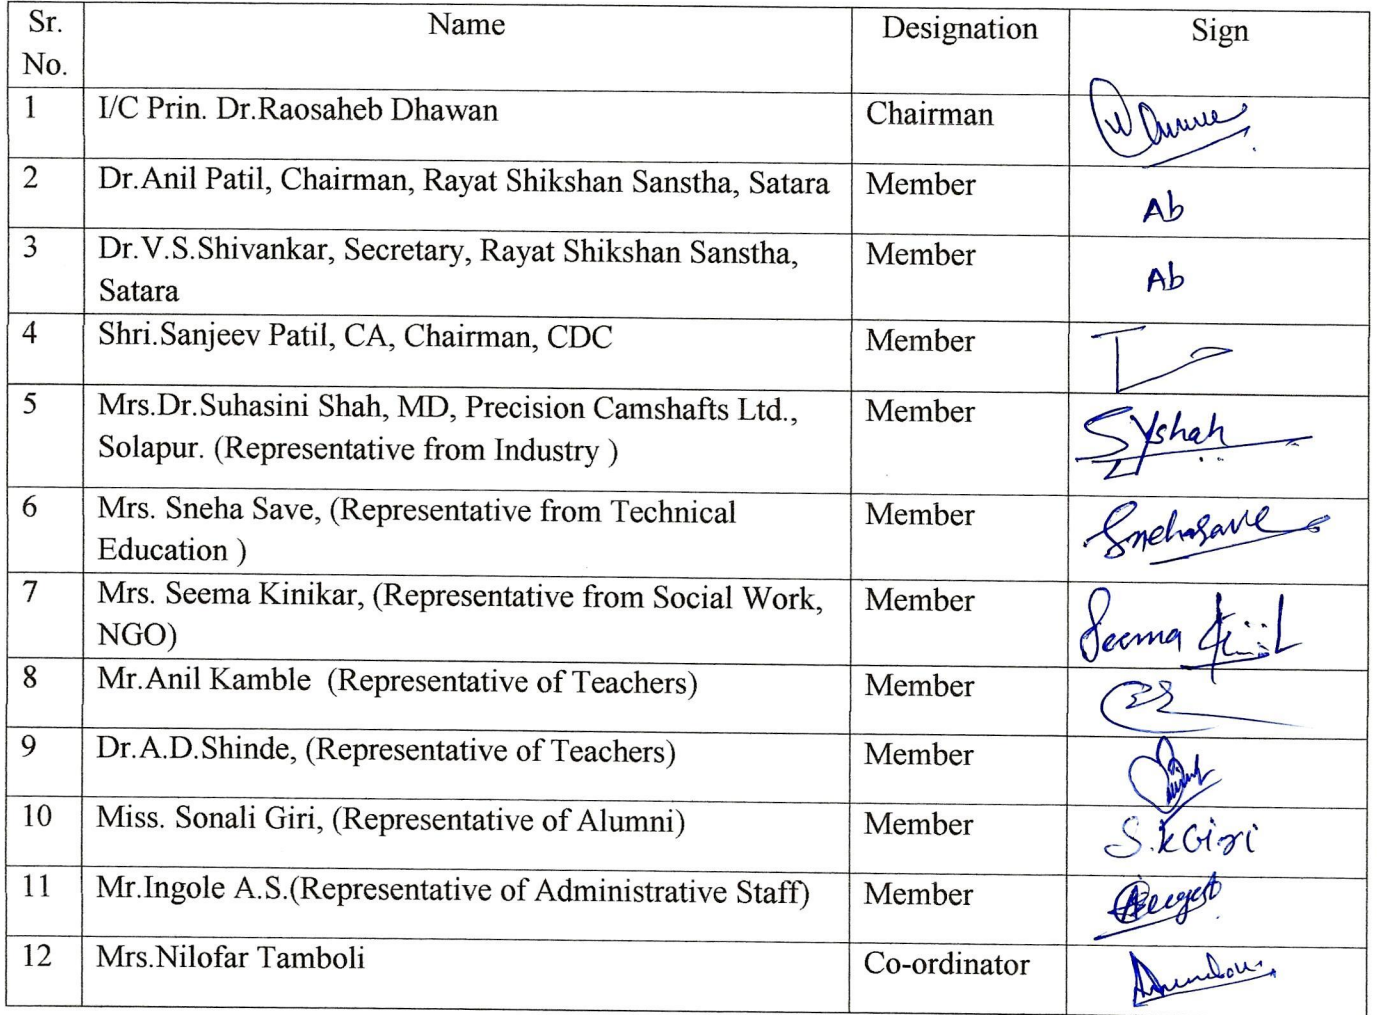 Sr. No. Name Designation Sign
1 I/C Prin. Dr.Raosaheb Dhawan Chairman
2 Dr.Anil Patil, Chairman, Rayat Shikshan Sanstha, Satara Member Ab
3 Dr.V.S.Shivankar, Secretary, Rayat Shikshan Sanstha, Member Ab
Satara
4 Shri.Sanjeev Patil, CA, Chairman, CDC Member
5 Mrs.Dr.Suhasini Shah, MD, Precision Camshafts Ltd., Member Syshah
Solapur. (Representative from Industry )
6 Mrs. Sneha Save, (Representative from Technical Member Snehasave
Education )
7 Mrs. Seema Kinikar, (Representative from Social Work, Member Seema
NGO)
8 Mr.Anil Kamble (Representative of Teachers) Member
9 Dr.A.D.Shinde, (Representative of Teachers) Member
10 Miss. Sonali Giri, (Representative of Alumni) Member S.K Giri
11 Mr.Ingole A.S.(Representative of Administrative Staff) Member
12 Mrs.Nilofar Tamboli Co-ordinator